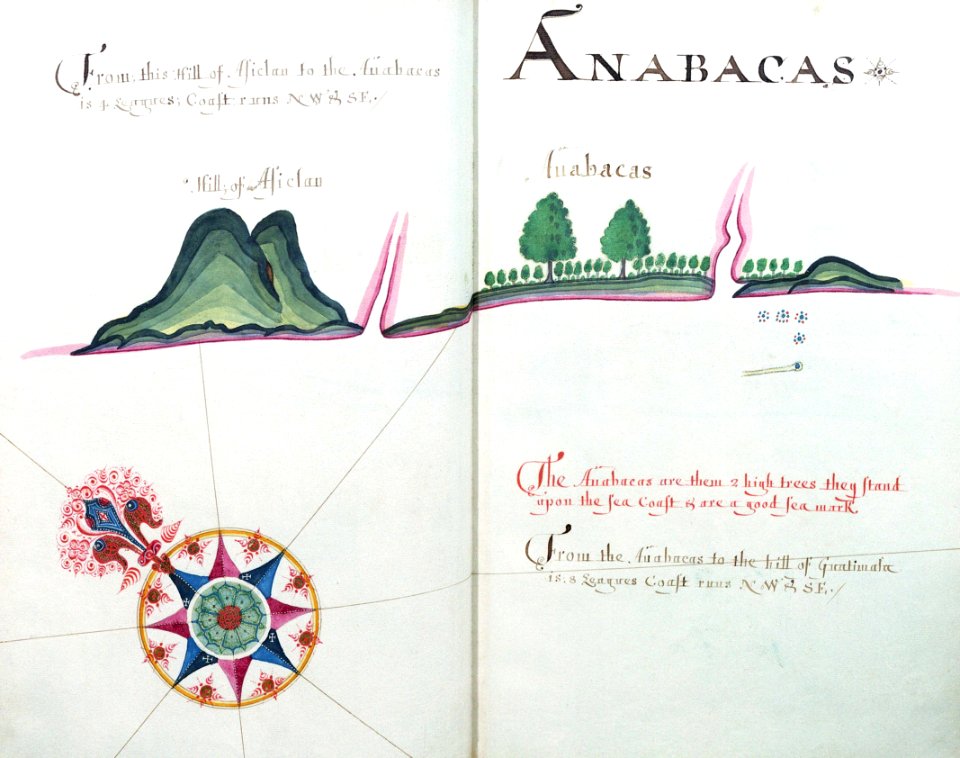 From this Hill of Asiclan to the Anabacas
is 4 Leagues; Coast runs N W & S E./
Hill, of Asiclan
ANABACAS
Anabacas
The Anabacas are them 2 high trees they stand
upon the sea Coast & are a good sea mark
From the Anabacas to the hill of Guatimala
is. 8 Leagues Coast runs N W & S E./